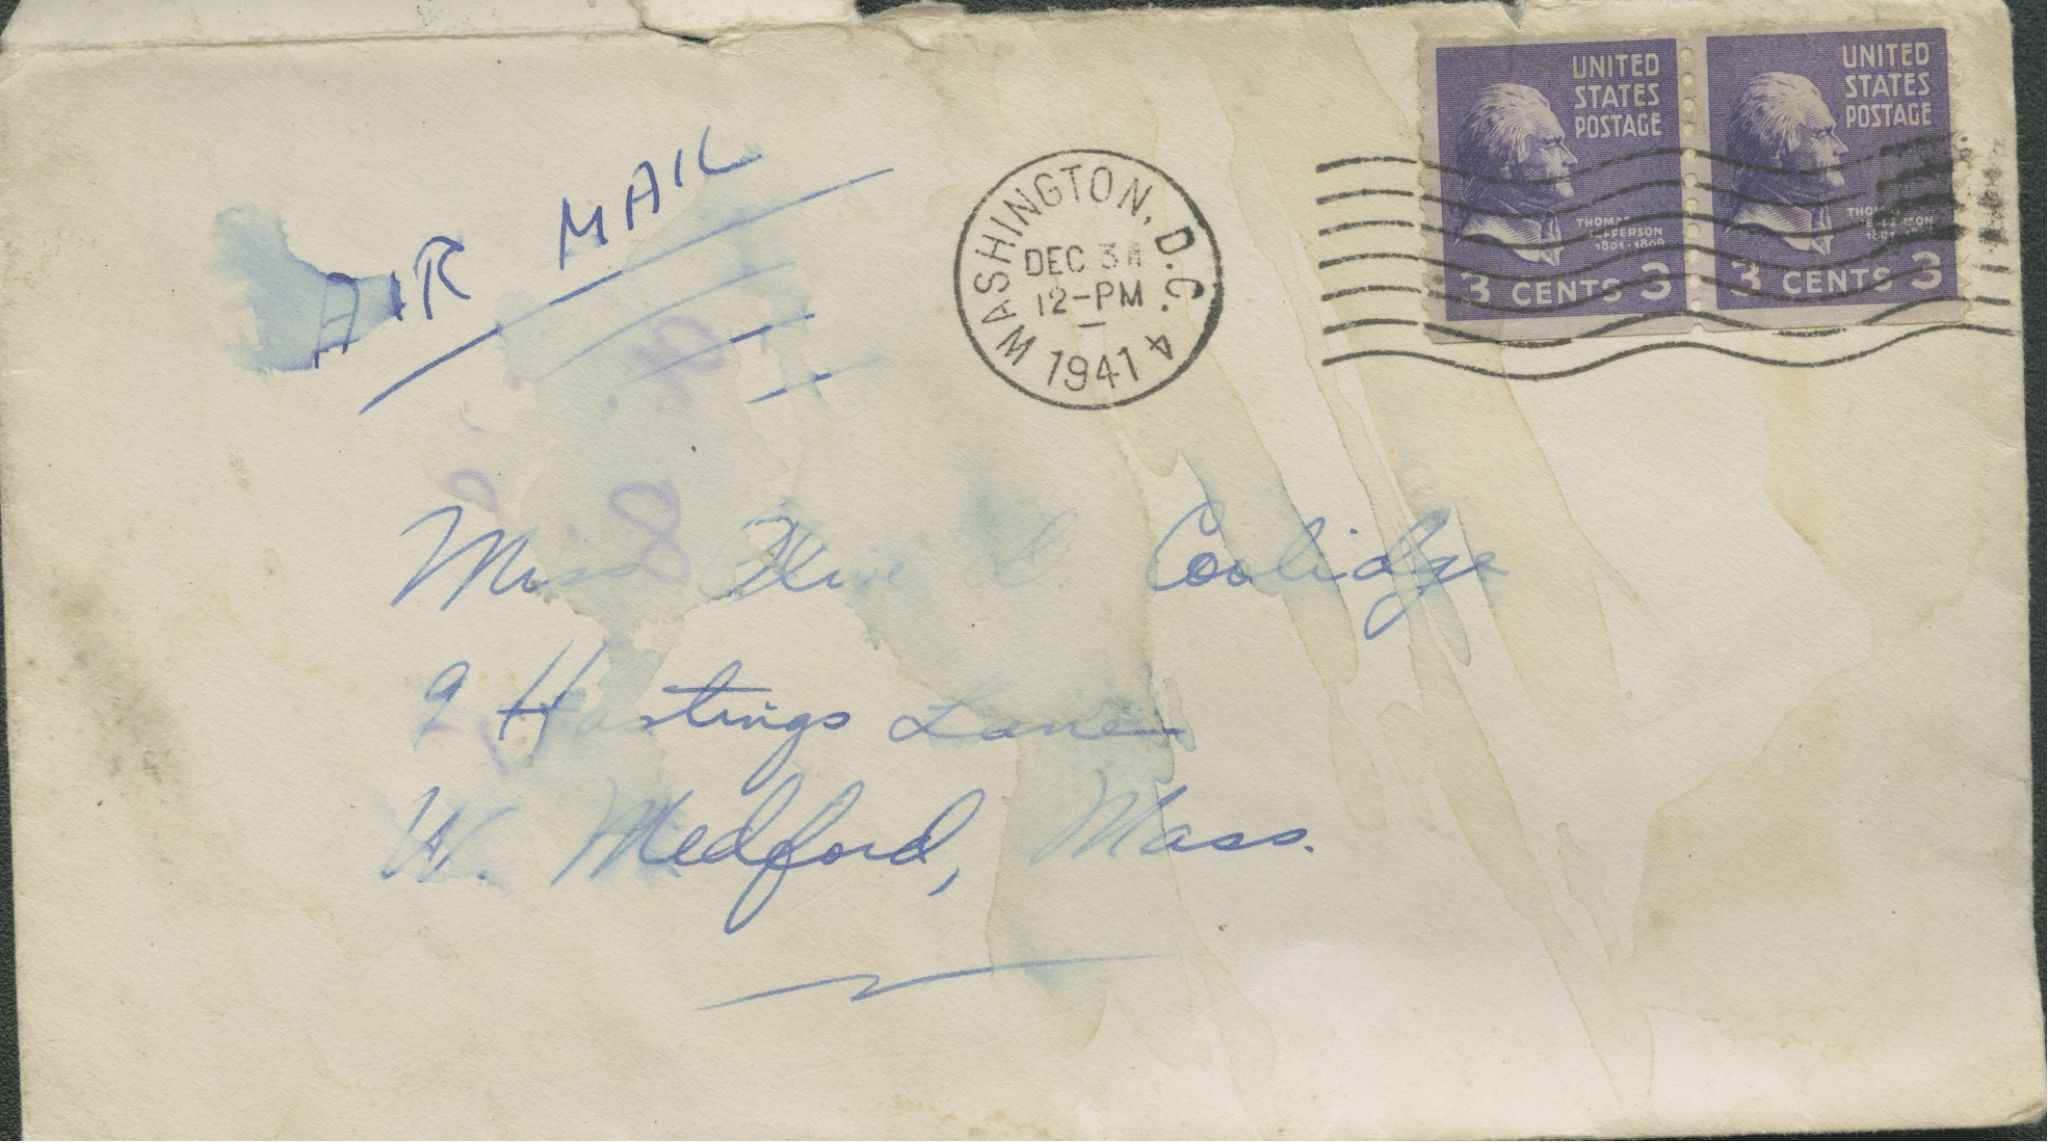 AIR MAIL
WASHINGTON, D.C. 4
DEC 31
12-PM
1941
UNITED
STATES
POSTAGE
THOMAS
JEFFERSON
1801-1809
3 CENTS 3
UNITED
STATES
POSTAGE
THOMAS
JEFFERSON
3 CENTS 3
Miss Olive Coolidge
9 Hastings Lane
W. Medford, Mass.